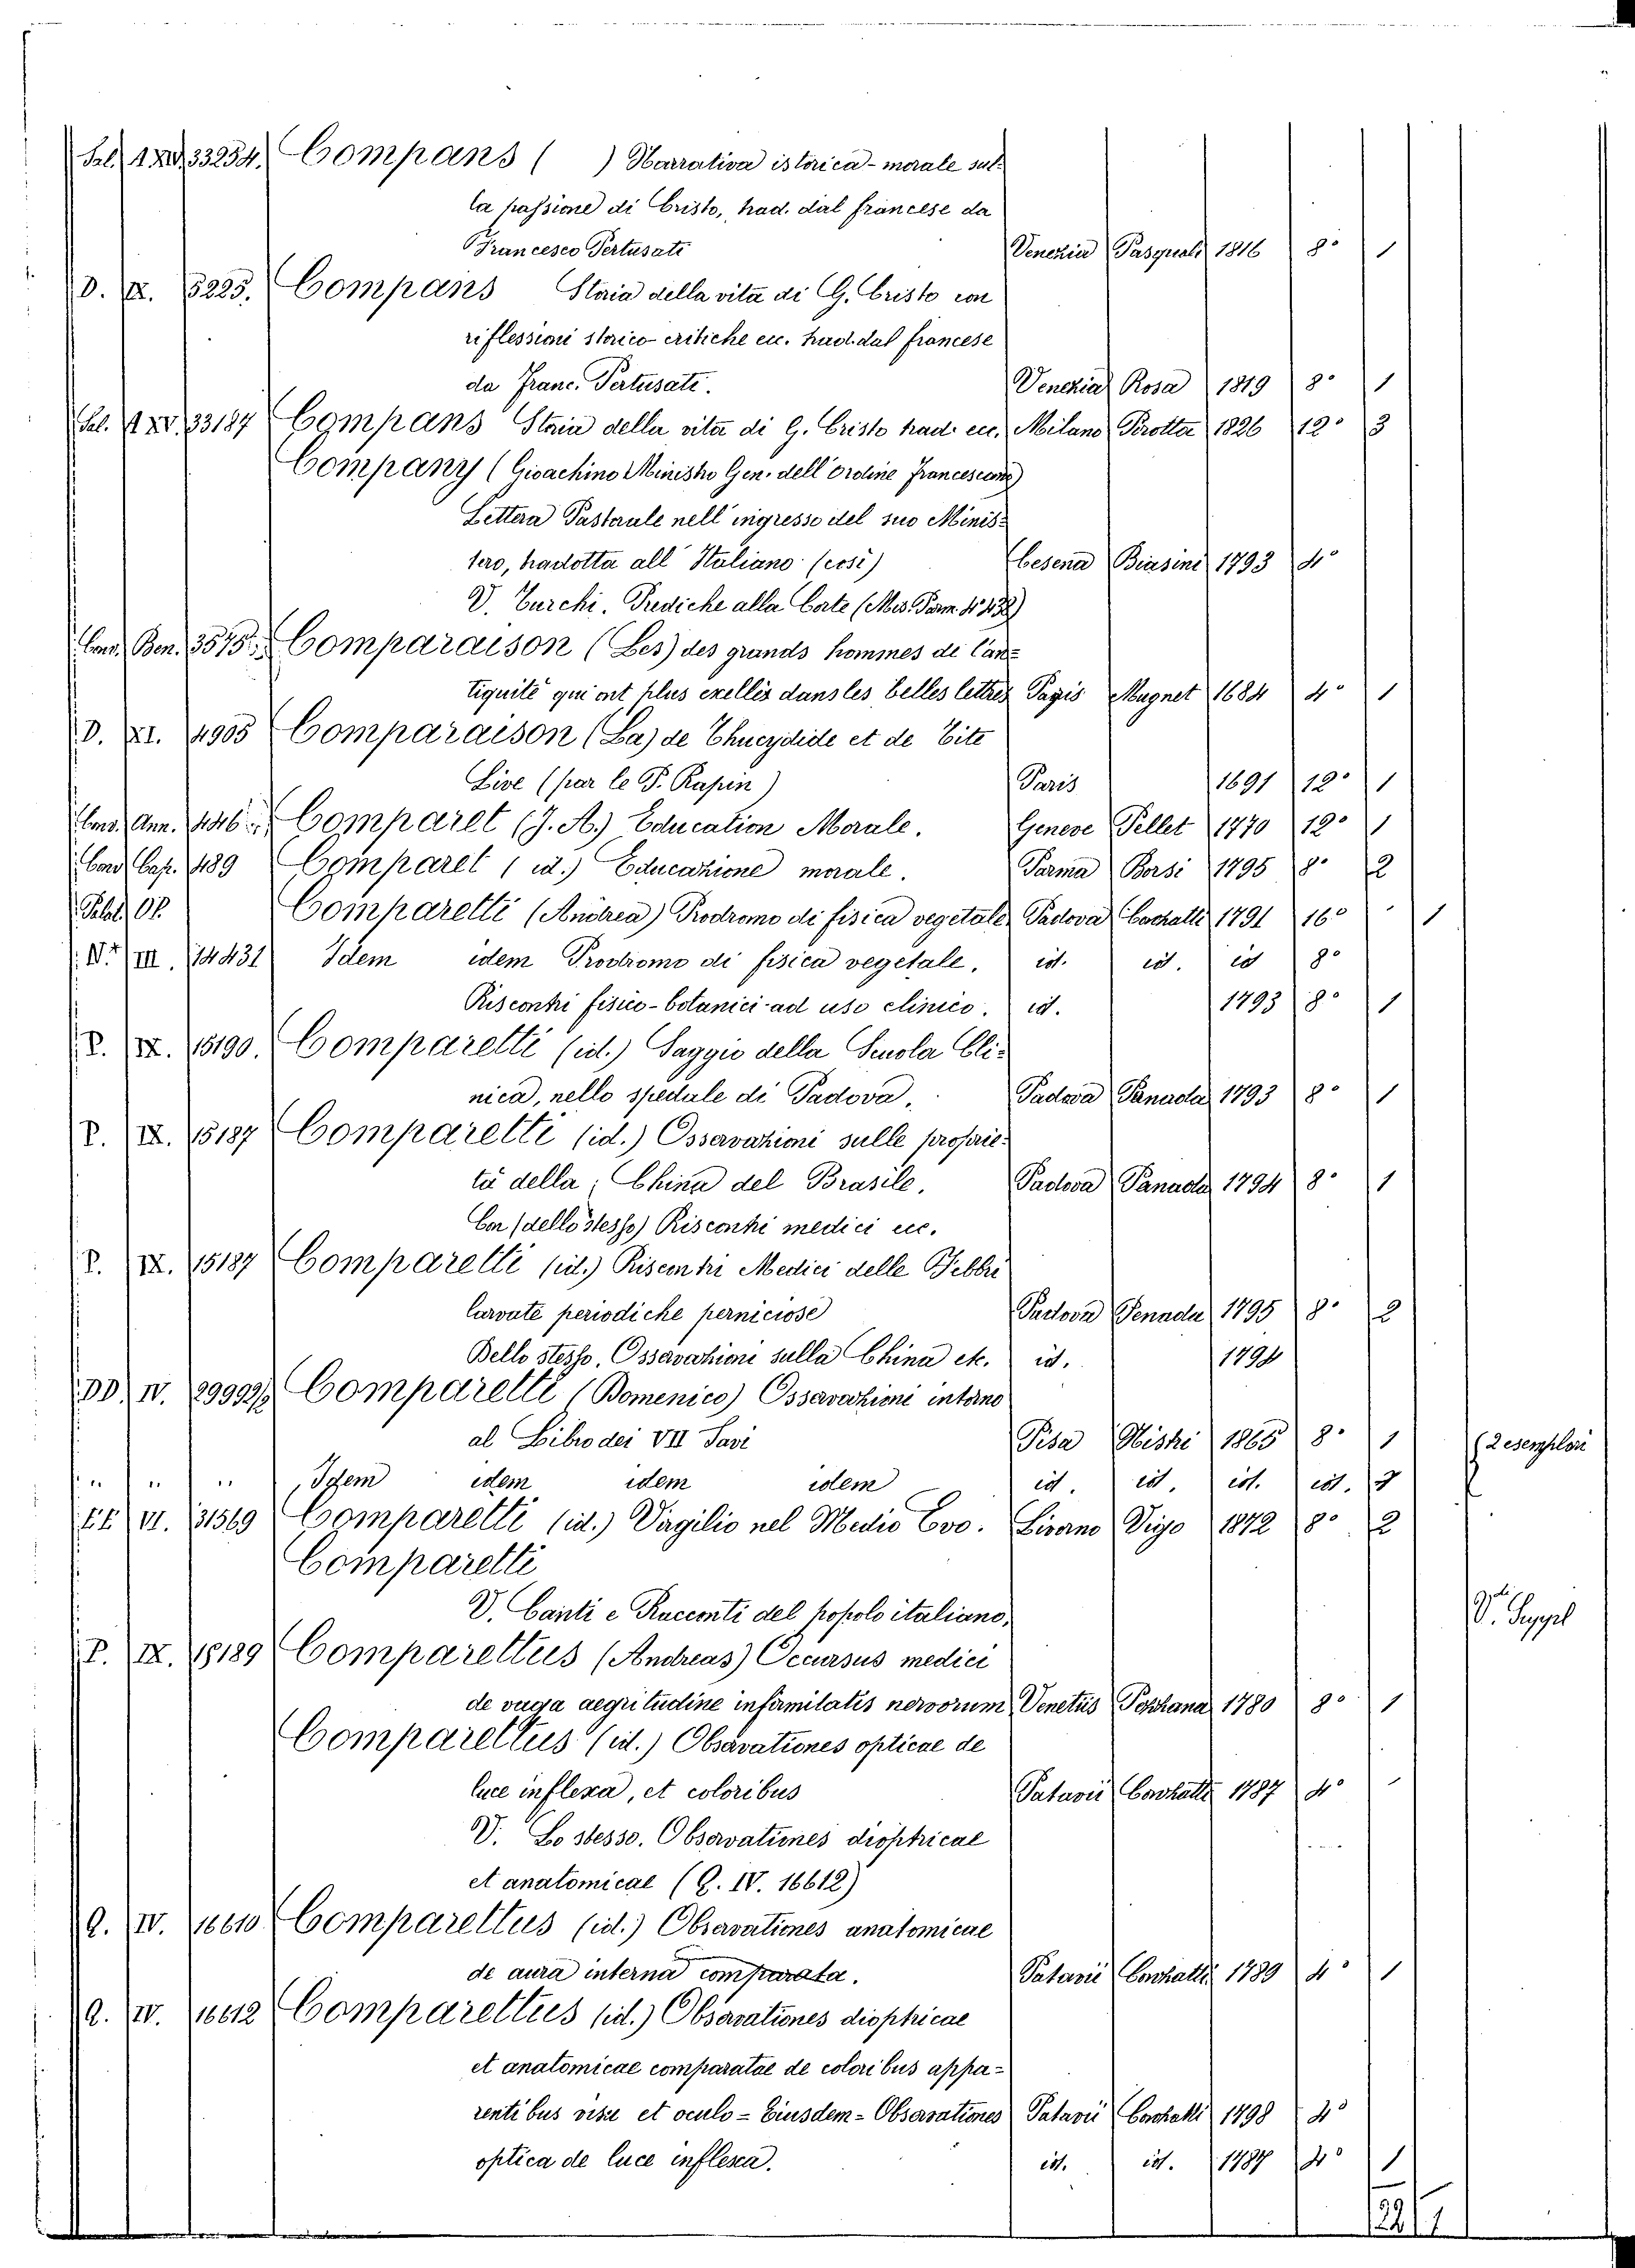 Sal. 1 XV. 33254. Compans ( ) Narrativa istorica-morale sul-
la passione di Cristo, trad. dal francese da
Francesco Pertusati Venezia Pasquali 1816 8° 1
D. X. 5225. Compans Storia della vita di G. Cristo con
riflessioni storico-critiche ecc. trad. dal francese
da Franc. Pertusati. Venezia Rosa 1819 8° 1
Sal. 1 XV. 33187 Compans Storia della vita di G. Cristo trad. ecc. Milano Pirotta 1826 12° 3
Company (Gioachino Ministro Gen. dell'ordine Francescano)
Lettera Pastorale nell'ingresso del suo Minis-
tero, tradotta all'Italiano (così) Cesena Biasini 1793 4°
V. Turchi. Prediche alla Corte (Mis. Parm. 4° 438)
Cons. Ben. 3575. Comparaison (Les) des grands hommes de l'an-
tiquité qui ont plus exellés dans les belles lettres Pagis Mugnet 1684 4° 1
D. XI. 4905 Comparaison (La) de Thucydide et de Tite
Live (par le P. Rapin) Paris 1691 12° 1
Cons. Ann. 446 Comparet (J. A.) Education Morale. Geneve Pellet 1770 12° 1
Cons. Cap. 489 Comparet (id.) Educazione morale. Parma Borsi 1795 8° 2
Palat. Op. Comparetti (Andrea) Prodromo di fisica vegetale. Padova Conzatti 1791 16° 1
N.r III. 14431 Idem idem Prodromo di fisica vegetale. id. id. id 8°
Riscontri fisico-botanici ad uso clinico. id. 1793 8° 1
P. IX. 15190. Comparetti (id.) Saggio della Scuola Cli-
nica, nello spedale di Padova. Padova Penada 1793 8° 1
P. IX. 15187 Comparetti (id.) Osservazioni sulle proprie-
tà della China del Brasile. Padova Panada 1794 8° 1
Con (dello stesso) Riscontri medici ecc.
P. IX. 15187 Comparetti (id.) Riscontri Medici delle Febbri
larvate periodiche perniciose Padova Penada 1795 8° 2
Dello stesso, Osservazioni sulla China etc. id. 1794
DD. IV. 29992/2 Comparetti (Domenico) Osservazioni intorno
al Libro dei VII Savi Pisa Nistri 1865 8° 1 (2 esemplari
" " " Idem idem idem idem id. id. id. id.
EE VI. 31569 Comparetti (id.) Virgilio nel Medio Evo. Livorno Vigo 1872 8° 2
Comparetti
V. Canti e Racconti del popolo italiano, V. Suppl
P. IX. 15189 Comparettus (Andreas) Occursus medici
de vaga aegritudine infirmitatis nervorum Venetiis Pezzana 1780 8° 1
Comparettus (id.) Observationes opticae de
luce inflexa, et coloribus Patavii Conzatti 1787 4°
V. Lo stesso. Observationes dioptricae
et anatomicae (Q. IV. 16612)
Q. IV. 16610 Comparettus (id.) Observationes anatomicae
de aura interna comparata. Patavii Conzatti 1789 4° 1
Q. IV. 16612 Comparettus (id.) Observationes dioptricae
et anatomicae comparatae de coloribus appa-
rentibus visu et oculo - Eiusdem - Observationes Patavii Conzatti 1798 4°
optica de luce inflexa. id. id. 1787 4° 1